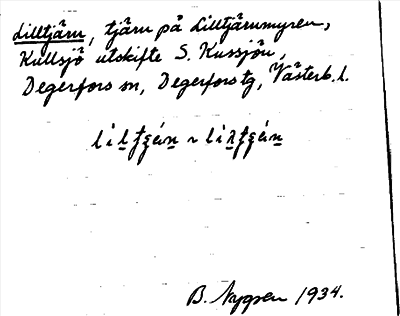 Lilltjärn, tjärn på Lilltjärnmyren,
Kullsjö utskifte S. Kussjön,
Degerfors sn, Degerfors tg, Västerb. l.
B. Nygren 1934.